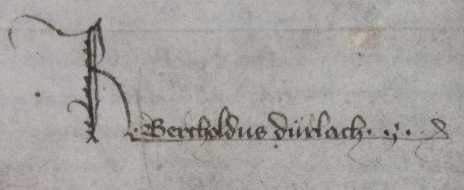 R Bertholdus dürlach